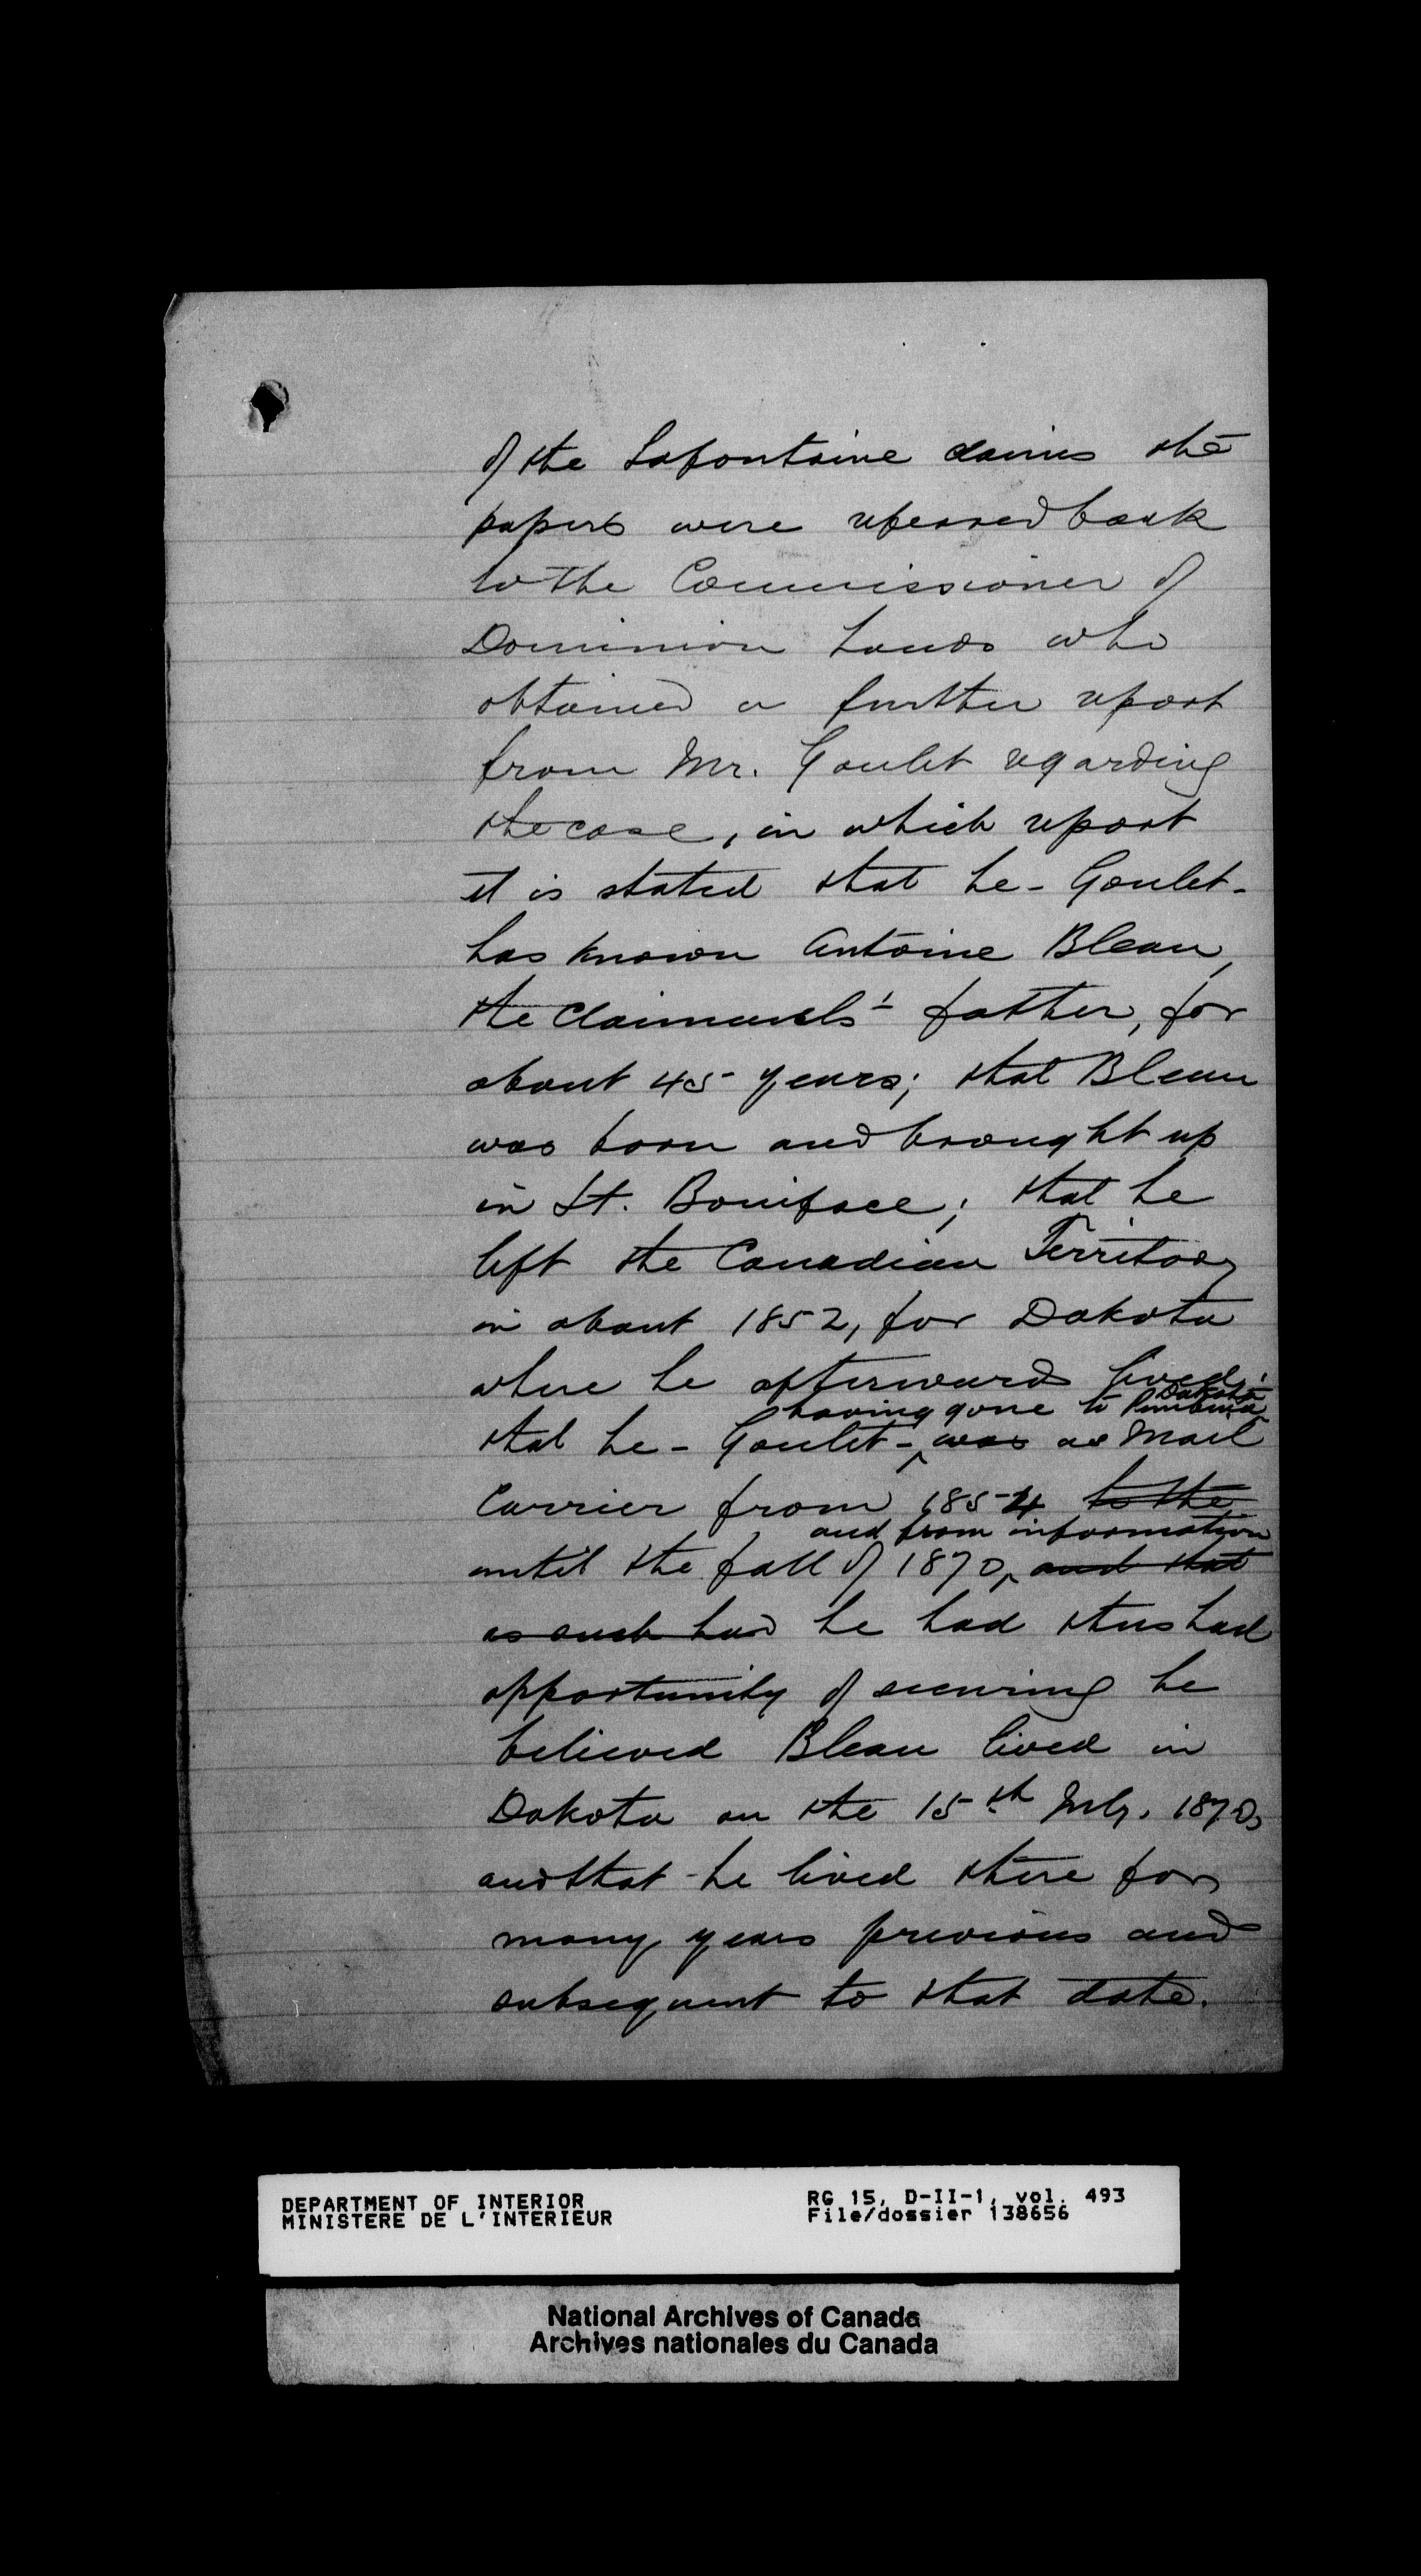 of the Lafontaine claims the
papers were referred back
to the Commissioner of
Dominion Lands who
obtained a further report
from Mr. Goulet regarding
the case, in which report
it is stated that he - Goulet -
has known Antoine Bleau,
the claimants' father, for
about 45 years; that Bleau
was born and brought up
in St. Boniface; that he
left the Canadian Territory
in about 1852, for Dakota
where he afterwards lived;
Dakota
having gone to Pembina
that he - Goulet - was as Mail
Carrier from 1854 to the
and from information
until the fall of 1870, and that
as such had he had thus had
opportunity of securing he
believed Bleau lived in
Dakota on the 15th July. 1870,
and that he lived there for
many years previous and
subsequent to that date.
DEPARTMENT OF INTERIOR
MINISTERE DE L'INTERIEUR
RG 15, D-II-1, vol. 493
File/dossier 138656
National Archives of Canada
Archives nationales du Canada